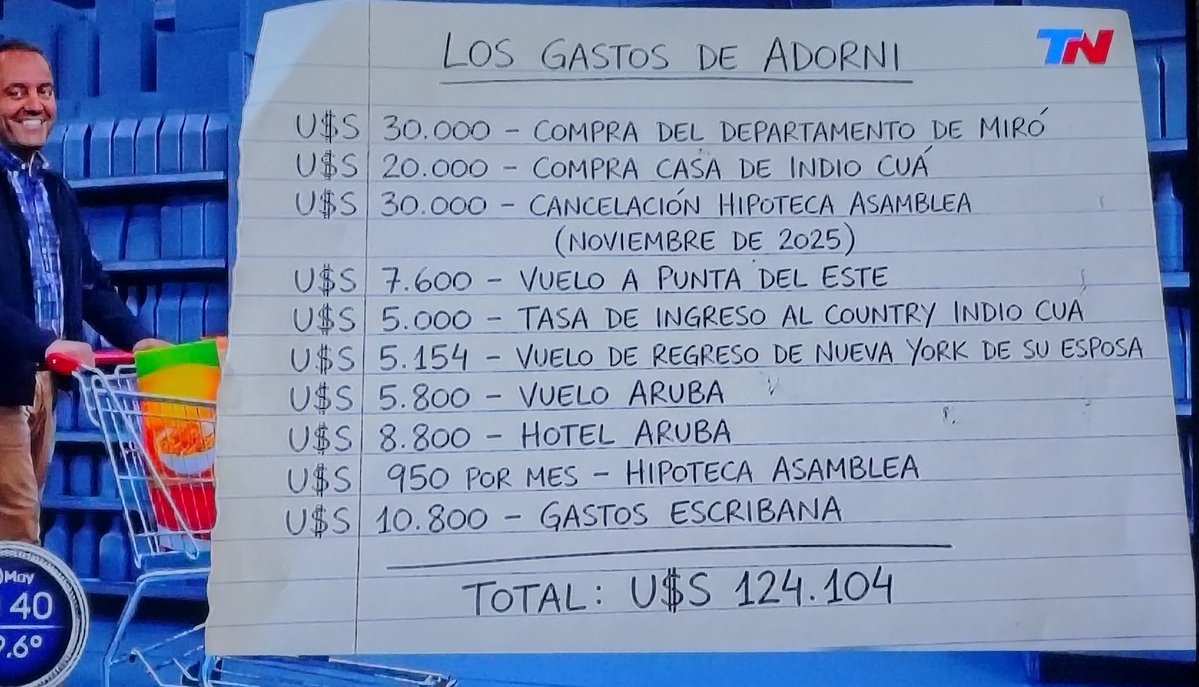 TN
LOS GASTOS DE ADORNI
U$S 30.000 – COMPRA DEL DEPARTAMENTO DE MIRÓ
U$S 20.000 – COMPRA CASA DE INDIO CUÁ
U$S 30.000 – CANCELACIÓN HIPOTECA ASAMBLEA
(NOVIEMBRE DE 2025)
U$S 7.600 – VUELO A PUNTA DEL ESTE
U$S 5.000 – TASA DE INGRESO AL COUNTRY INDIO CUÁ
U$S 5.154 – VUELO DE REGRESO DE NUEVA YORK DE SU ESPOSA
U$S 5.800 – VUELO ARUBA
U$S 8.800 – HOTEL ARUBA
U$S 950 POR MES – HIPOTECA ASAMBLEA
U$S 10.800 – GASTOS ESCRIBANA
TOTAL: U$S 124.104
May
40
.6°